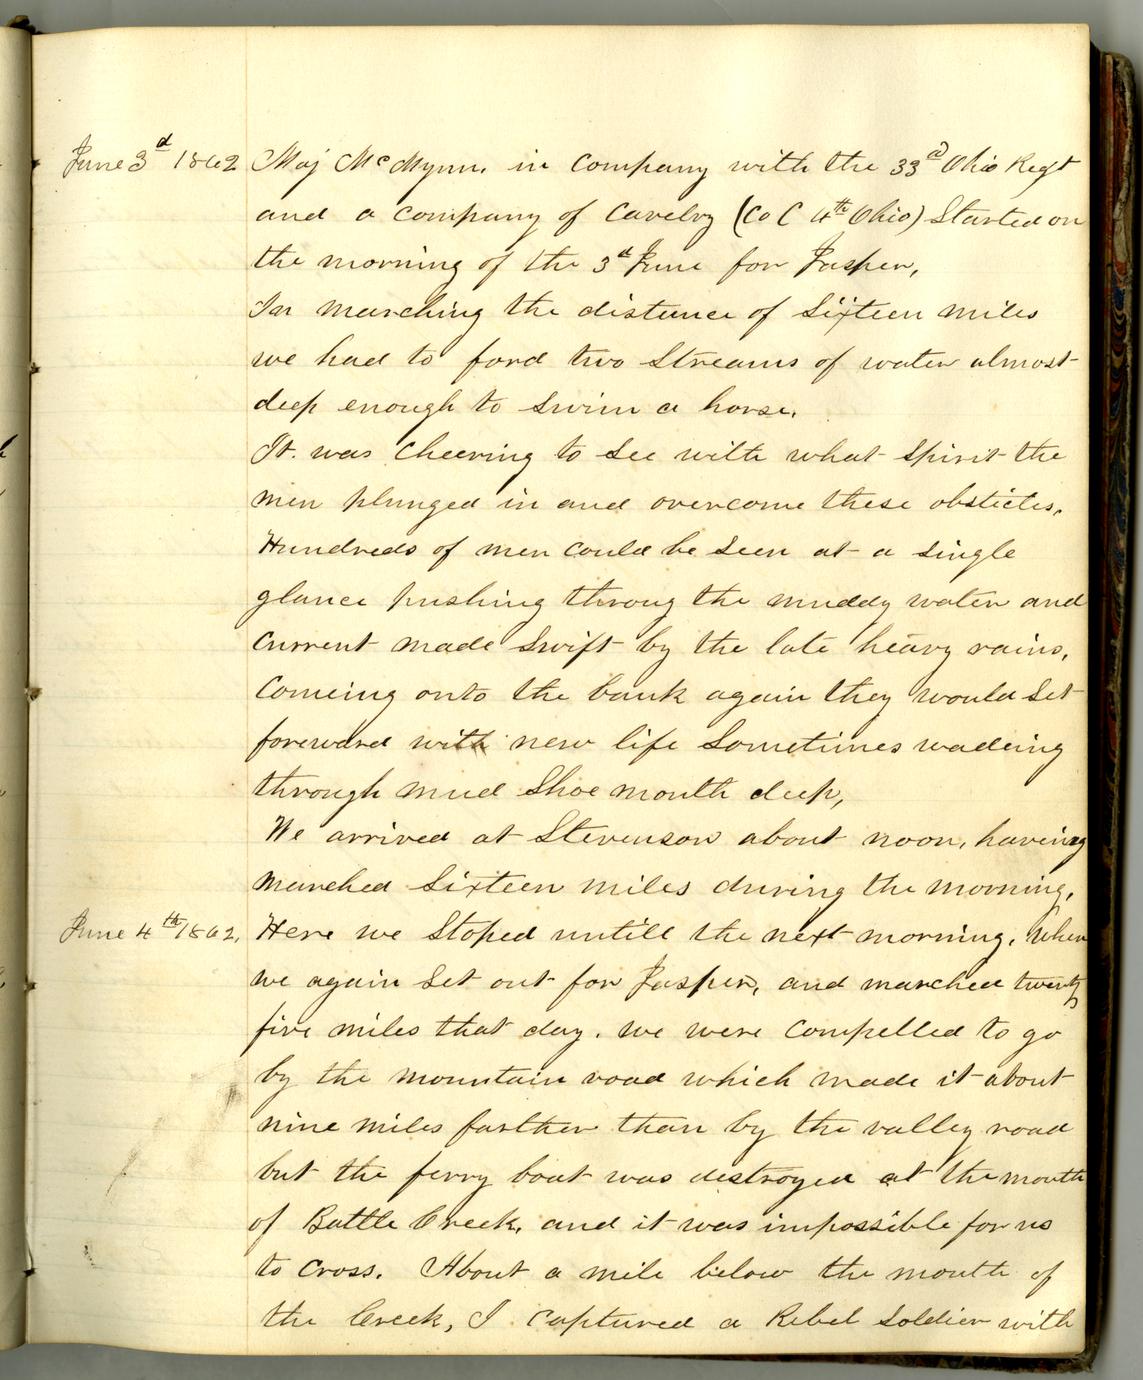 June 3d 1862 Maj McMynn. in company with the 33d Ohio Regt
and a company of Cavelry (Co C 4th Ohio) Started on
the morning of the 3d June for Jasper,
In marching the distance of Sixteen miles
we had to ford two Streams of water almost
deep enough to Swim a horse.
It was Cheering to See with what Spirit the
men plunged in and overcome these obsticles.
Hundreds of men could be Seen at a Single
glance pushing throug the muddy water and
Current made Swift by the late heavy rains,
Comeing onto the bank again they would Set
foreward with new life Sometimes wadeing
through mud Shoe mouth deep,
We arrived at Stevenson about noon, haveing
marched Sixteen miles during the morning,
June 4th 1862, Here we Stoped untill the next morning, when
we again Set out for Jasper, and marched twenty
five miles that day. we were Compelled to go
by the mountain road which made it about
nine miles farther than by the valley road
but the ferry boat was destroyed at the mouth
of Battle Creek, and it was impossible for us
to Cross. About a mile below the mouth of
the Creek, I captured a Rebel Soldier with